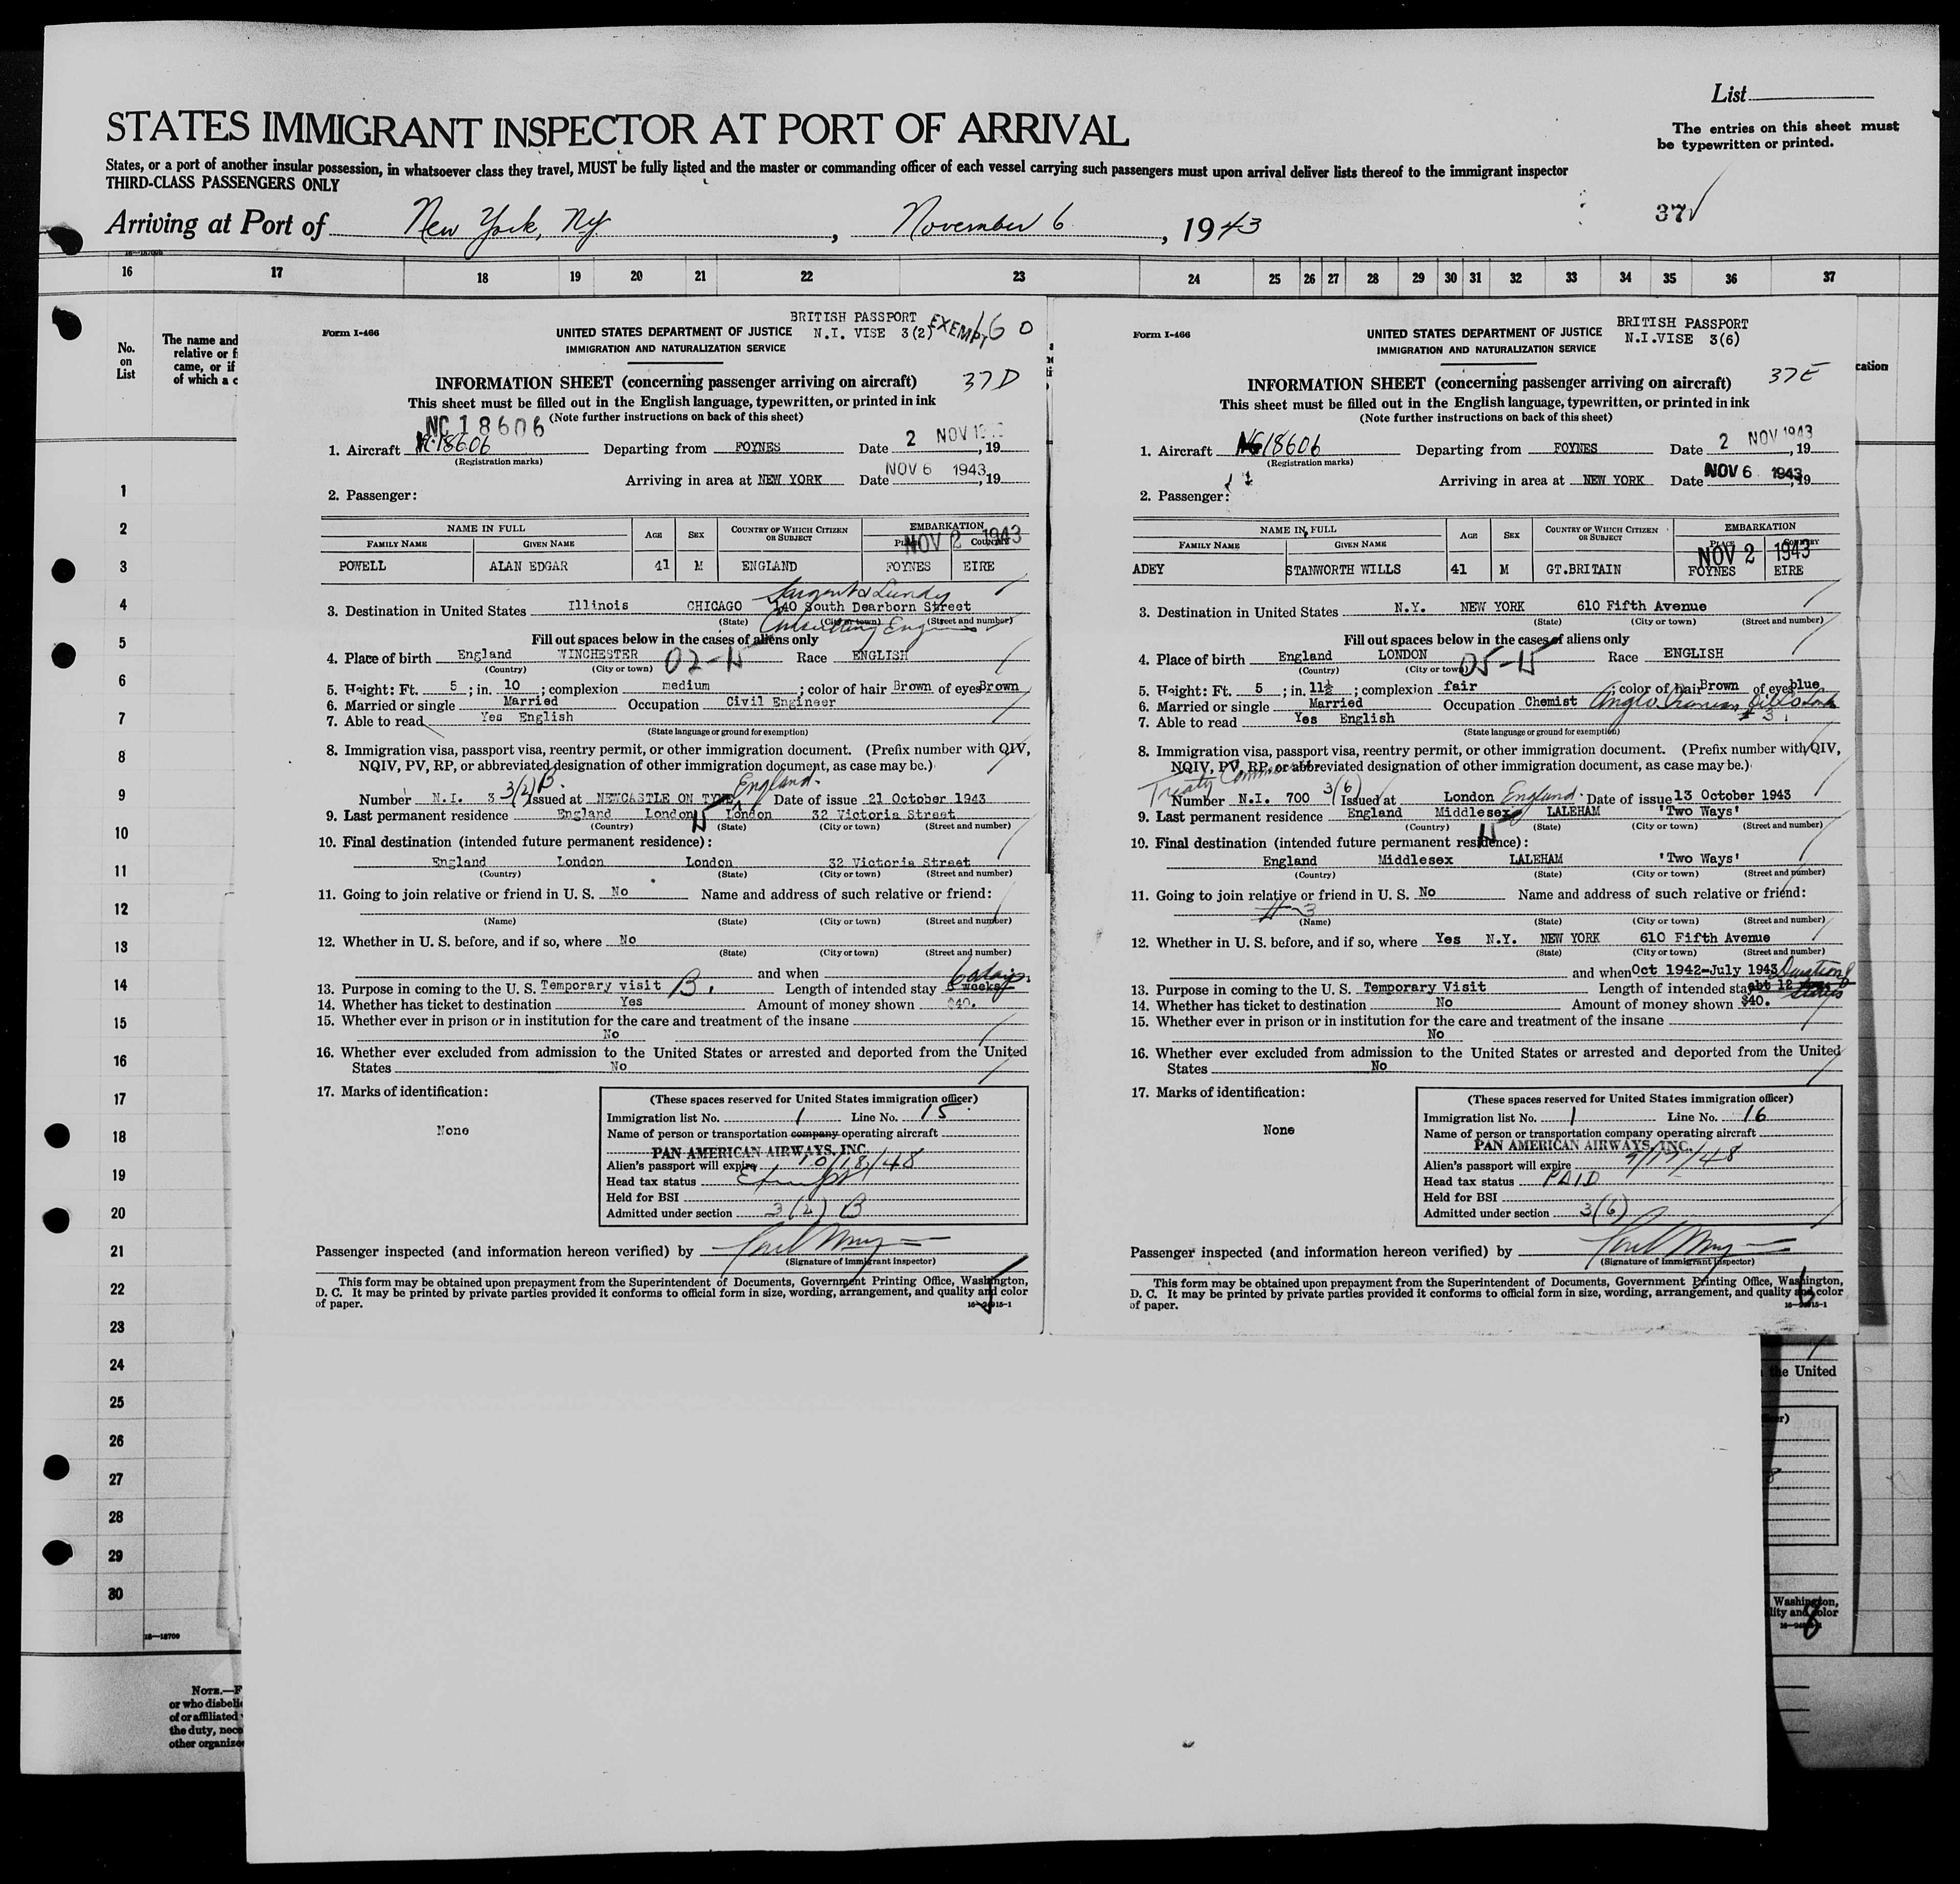 List
STATES IMMIGRANT INSPECTOR AT PORT OF ARRIVAL
The entries on this sheet must
be typewritten or printed.
States, or a port of another insular possession, in whatsoever class they travel, MUST be fully listed and the master or commanding officer of each vessel carrying such passengers must upon arrival deliver lists thereof to the immigrant inspector
THIRD-CLASS PASSENGERS ONLY
37
Arriving at Port of New York, NY, November 6, 1943
16 17 18 19 20 21 22 23 24 25 26 27 28 29 30 31 32 33 34 35 36 37
No.
on
List
The name and
relative or f
came, or if
of which a c
1
2
3
4
5
6
7
8
9
10
11
12
13
14
15
16
17
18
19
20
21
22
23
24
25
26
27
28
29
30
16—18700
NOTE.—F
or who disbelie
of or affiliated
the duty, nece
other organize
BRITISH PASSPORT
Form I-466
UNITED STATES DEPARTMENT OF JUSTICE N.I. VISE 3(2) EXEMPT
IMMIGRATION AND NATURALIZATION SERVICE
INFORMATION SHEET (concerning passenger arriving on aircraft) 37D
This sheet must be filled out in the English language, typewritten, or printed in ink
NC18606 (Note further instructions on back of this sheet)
1. Aircraft NC18606 Departing from FOYNES Date 2 NOV, 19
(Registration marks)
Arriving in area at NEW YORK Date NOV 6 1943, 19
2. Passenger:
NAME IN FULL AGE SEX COUNTRY OF WHICH CITIZEN OR SUBJECT EMBARKATION
FAMILY NAME GIVEN NAME PLACE COUNTRY
NOV 2 1943
POWELL ALAN EDGAR 41 M ENGLAND FOYNES EIRE
Sargent & Lundy
3. Destination in United States Illinois CHICAGO 140 South Dearborn Street
(State) (City or town) (Street and number)
Consulting Engineers
Fill out spaces below in the cases of aliens only
4. Place of birth England WINCHESTER 02-15 Race ENGLISH
(Country) (City or town)
5. Height: Ft. 5; in. 10; complexion medium; color of hair Brown of eyes Brown
6. Married or single Married Occupation Civil Engineer
7. Able to read Yes English
(State language or ground for exemption)
8. Immigration visa, passport visa, reentry permit, or other immigration document. (Prefix number with QIV,
NQIV, PV, RP, or abbreviated designation of other immigration document, as case may be.)
Number N.I. 3 3(2) B. Issued at NEWCASTLE ON TYNE England. Date of issue 21 October 1943
9. Last permanent residence England London London 32 Victoria Street
(Country) (State) (City or town) (Street and number)
10. Final destination (intended future permanent residence):
England London London 32 Victoria Street
(Country) (State) (City or town) (Street and number)
11. Going to join relative or friend in U. S. No Name and address of such relative or friend:
(Name) (State) (City or town) (Street and number)
12. Whether in U. S. before, and if so, where No
(State) (City or town) (Street and number)
and when
13. Purpose in coming to the U. S. Temporary visit B. Length of intended stay weeks 60 days.
14. Whether has ticket to destination Yes Amount of money shown $40.
15. Whether ever in prison or in institution for the care and treatment of the insane
No
16. Whether ever excluded from admission to the United States or arrested and deported from the United
States No
17. Marks of identification:
None
(These spaces reserved for United States immigration officer)
Immigration list No. 1 Line No. 15
Name of person or transportation company operating aircraft
PAN AMERICAN AIRWAYS, INC.
Alien's passport will expire 10/18/48
Head tax status Exempt
Held for BSI
Admitted under section 3(2) B
Passenger inspected (and information hereon verified) by
(Signature of immigrant inspector)
This form may be obtained upon prepayment from the Superintendent of Documents, Government Printing Office, Washington,
D. C. It may be printed by private parties provided it conforms to official form in size, wording, arrangement, and quality and color
of paper.
BRITISH PASSPORT
Form I-466
UNITED STATES DEPARTMENT OF JUSTICE N.I.VISE 3(6)
IMMIGRATION AND NATURALIZATION SERVICE
INFORMATION SHEET (concerning passenger arriving on aircraft) 37E
This sheet must be filled out in the English language, typewritten, or printed in ink
(Note further instructions on back of this sheet)
1. Aircraft NC18606 Departing from FOYNES Date 2 NOV 1943, 19
(Registration marks)
Arriving in area at NEW YORK Date NOV 6 1943, 19
2. Passenger:
NAME IN FULL AGE SEX COUNTRY OF WHICH CITIZEN OR SUBJECT EMBARKATION
FAMILY NAME GIVEN NAME PLACE COUNTRY
NOV 2 1943
ADEY STANWORTH WILLS 41 M GT.BRITAIN FOYNES EIRE
3. Destination in United States N.Y. NEW YORK 610 Fifth Avenue
(State) (City or town) (Street and number)
Fill out spaces below in the cases of aliens only
4. Place of birth England LONDON 05-15 Race ENGLISH
(Country) (City or town)
5. Height: Ft. 5; in. 11½; complexion fair; color of hair Brown of eyes blue
6. Married or single Married Occupation Chemist Anglo Iranian Oil Co
7. Able to read Yes English # 3
(State language or ground for exemption)
8. Immigration visa, passport visa, reentry permit, or other immigration document. (Prefix number with QIV,
NQIV, PV, RP, or abbreviated designation of other immigration document, as case may be.)
Treaty
Number N.I. 700 3(6) Issued at London England. Date of issue 13 October 1943
9. Last permanent residence England Middlesex LALEHAM 'Two Ways'
(Country) (State) (City or town) (Street and number)
10. Final destination (intended future permanent residence):
England Middlesex LALEHAM 'Two Ways'
(Country) (State) (City or town) (Street and number)
11. Going to join relative or friend in U. S. No Name and address of such relative or friend:
# 3
(Name) (State) (City or town) (Street and number)
12. Whether in U. S. before, and if so, where Yes N.Y. NEW YORK 610 Fifth Avenue
(State) (City or town) (Street and number)
and when Oct 1942-July 1943
13. Purpose in coming to the U. S. Temporary Visit Length of intended stay abt 12 Duration of status
14. Whether has ticket to destination No Amount of money shown $40.
15. Whether ever in prison or in institution for the care and treatment of the insane
No
16. Whether ever excluded from admission to the United States or arrested and deported from the United
States No
17. Marks of identification:
None
(These spaces reserved for United States immigration officer)
Immigration list No. 1 Line No. 16
Name of person or transportation company operating aircraft
PAN AMERICAN AIRWAYS, INC.
Alien's passport will expire 9/17/48
Head tax status PAID
Held for BSI
Admitted under section 3(6)
Passenger inspected (and information hereon verified) by
(Signature of immigrant inspector)
This form may be obtained upon prepayment from the Superintendent of Documents, Government Printing Office, Washington,
D. C. It may be printed by private parties provided it conforms to official form in size, wording, arrangement, and quality and color
of paper.
cation
the United
Washington,
lity and color
8